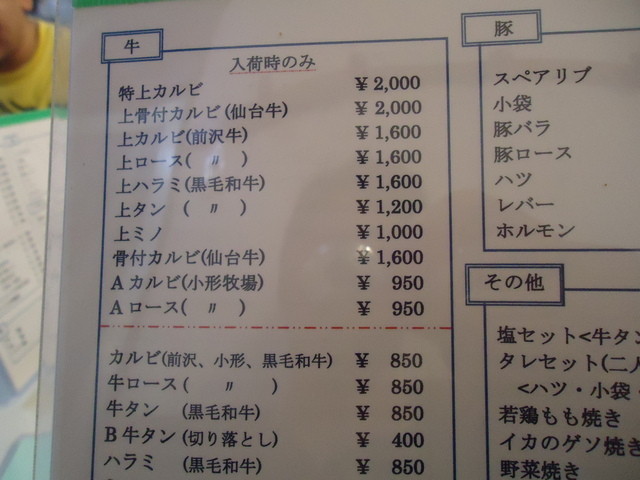 牛
入荷時のみ
特上カルビ ￥2,000
上骨付カルビ(仙台牛) ￥2,000
上カルビ(前沢牛) ￥1,600
上ロース( 〃 ) ￥1,600
上ハラミ(黒毛和牛) ￥1,600
上タン ( 〃 ) ￥1,200
上ミノ ￥1,000
骨付カルビ(仙台牛) ￥1,600
Aカルビ(小形牧場) ￥ 950
Aロース( 〃 ) ￥ 950
カルビ(前沢、小形、黒毛和牛) ￥ 850
牛ロース( 〃 ) ￥ 850
牛タン (黒毛和牛) ￥ 850
B牛タン(切り落とし) ￥ 400
ハラミ (黒毛和牛) ￥ 850
豚
スペアリブ
小袋
豚バラ
豚ロース
ハツ
レバー
ホルモン
その他
塩セット<牛タン
タレセット(二人
<ハツ・小袋・
若鶏もも焼き
イカのゲソ焼き
野菜焼き